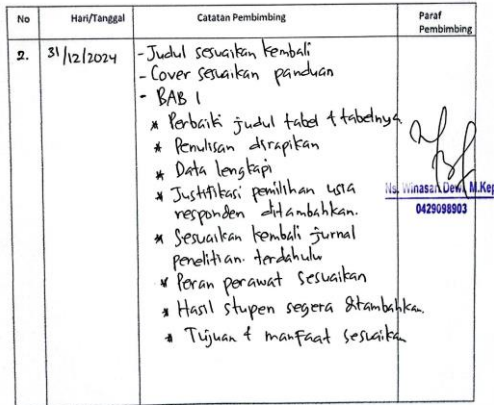 No Hari/Tanggal Catatan Pembimbing Paraf Pembimbing
2. 31/12/2024 - Judul sesuaikan kembali
- Cover sesuaikan panduan
- BAB 1
* Perbaiki judul tabel & tabelnya
* Penulisan dirapikan
* Data lengkapi
* Justifikasi pemilihan usia
responden ditambahkan.
* Sesuaikan kembali jurnal
penelitian terdahulu
* Peran perawat sesuaikan
* Hasil stupen segera ditambahkan.
* Tujuan & manfaat sesuaikan
Ns. Winasari Dewi, M.Kep
0429098903